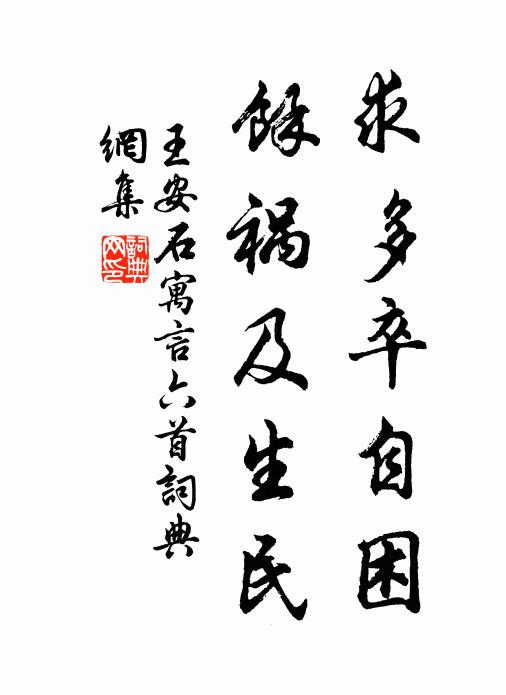 求多卒自困
餘祸及生民
王安石寓言六首詞典
網集
詞典
网印